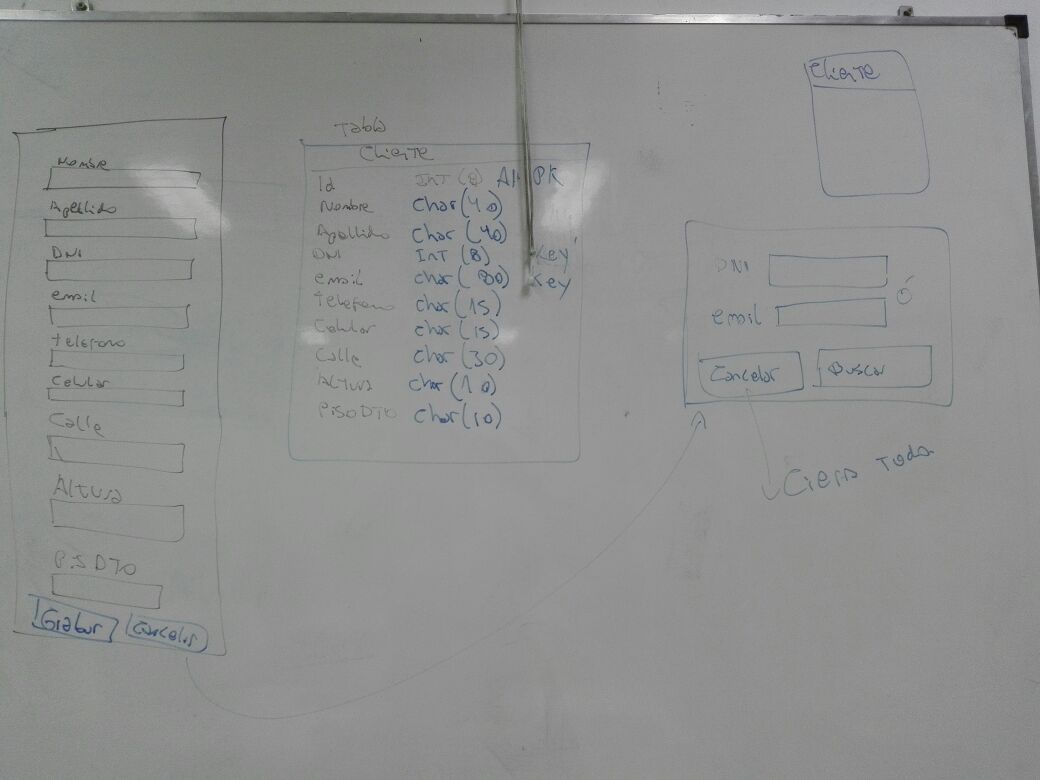 Nombre
Apellido
DNI
email
Telefono
Celular
Calle
Altura
P.S DTO
Grabar Cancelar
Tabla
Cliente
Id INT (8) AI PK
Nombre char (40)
Apellido char (40)
DNI INT (8) Key
email char (100) Key
Telefono char (15)
Celular char (15)
Calle char (30)
Altura char (10)
PisoDTO char (10)
Cliente
DNI
ó
email
Cancelar Buscar
Cierra Toda